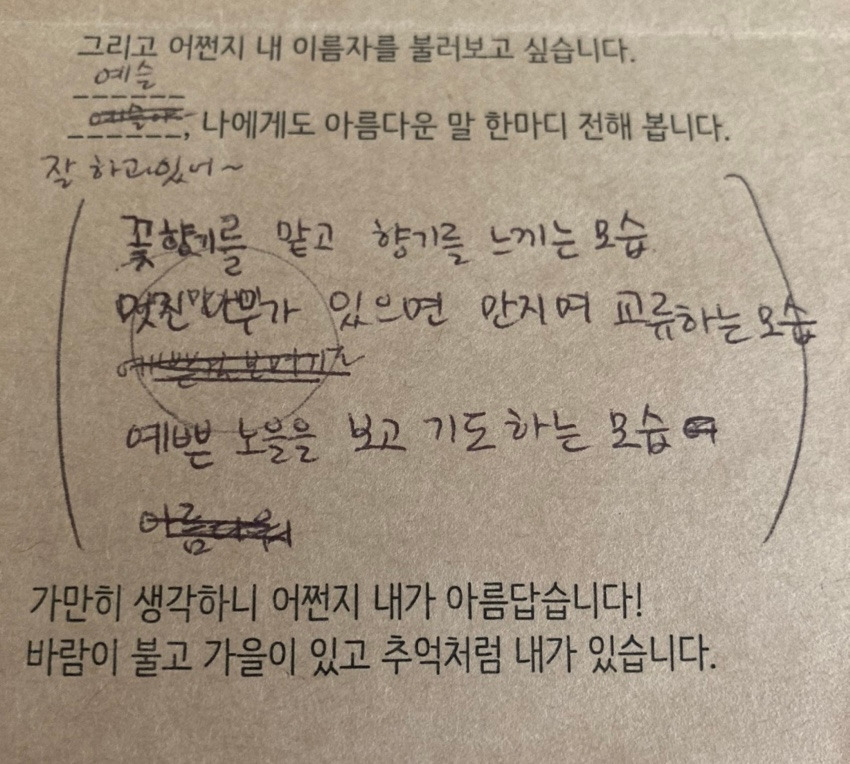 그리고 어쩐지 내 이름자를 불러보고 싶습니다.
예슬
예슬아, 나에게도 아름다운 말 한마디 전해 봅니다.
잘 하고있어~
꽃향기를 맡고 향기를 느끼는 모습
멋진 나무가 있으면 만지며 교류하는 모습
예쁜 노을을 보고 기도하는 모습
아름다워
가만히 생각하니 어쩐지 내가 아름답습니다!
바람이 불고 가을이 있고 추억처럼 내가 있습니다.